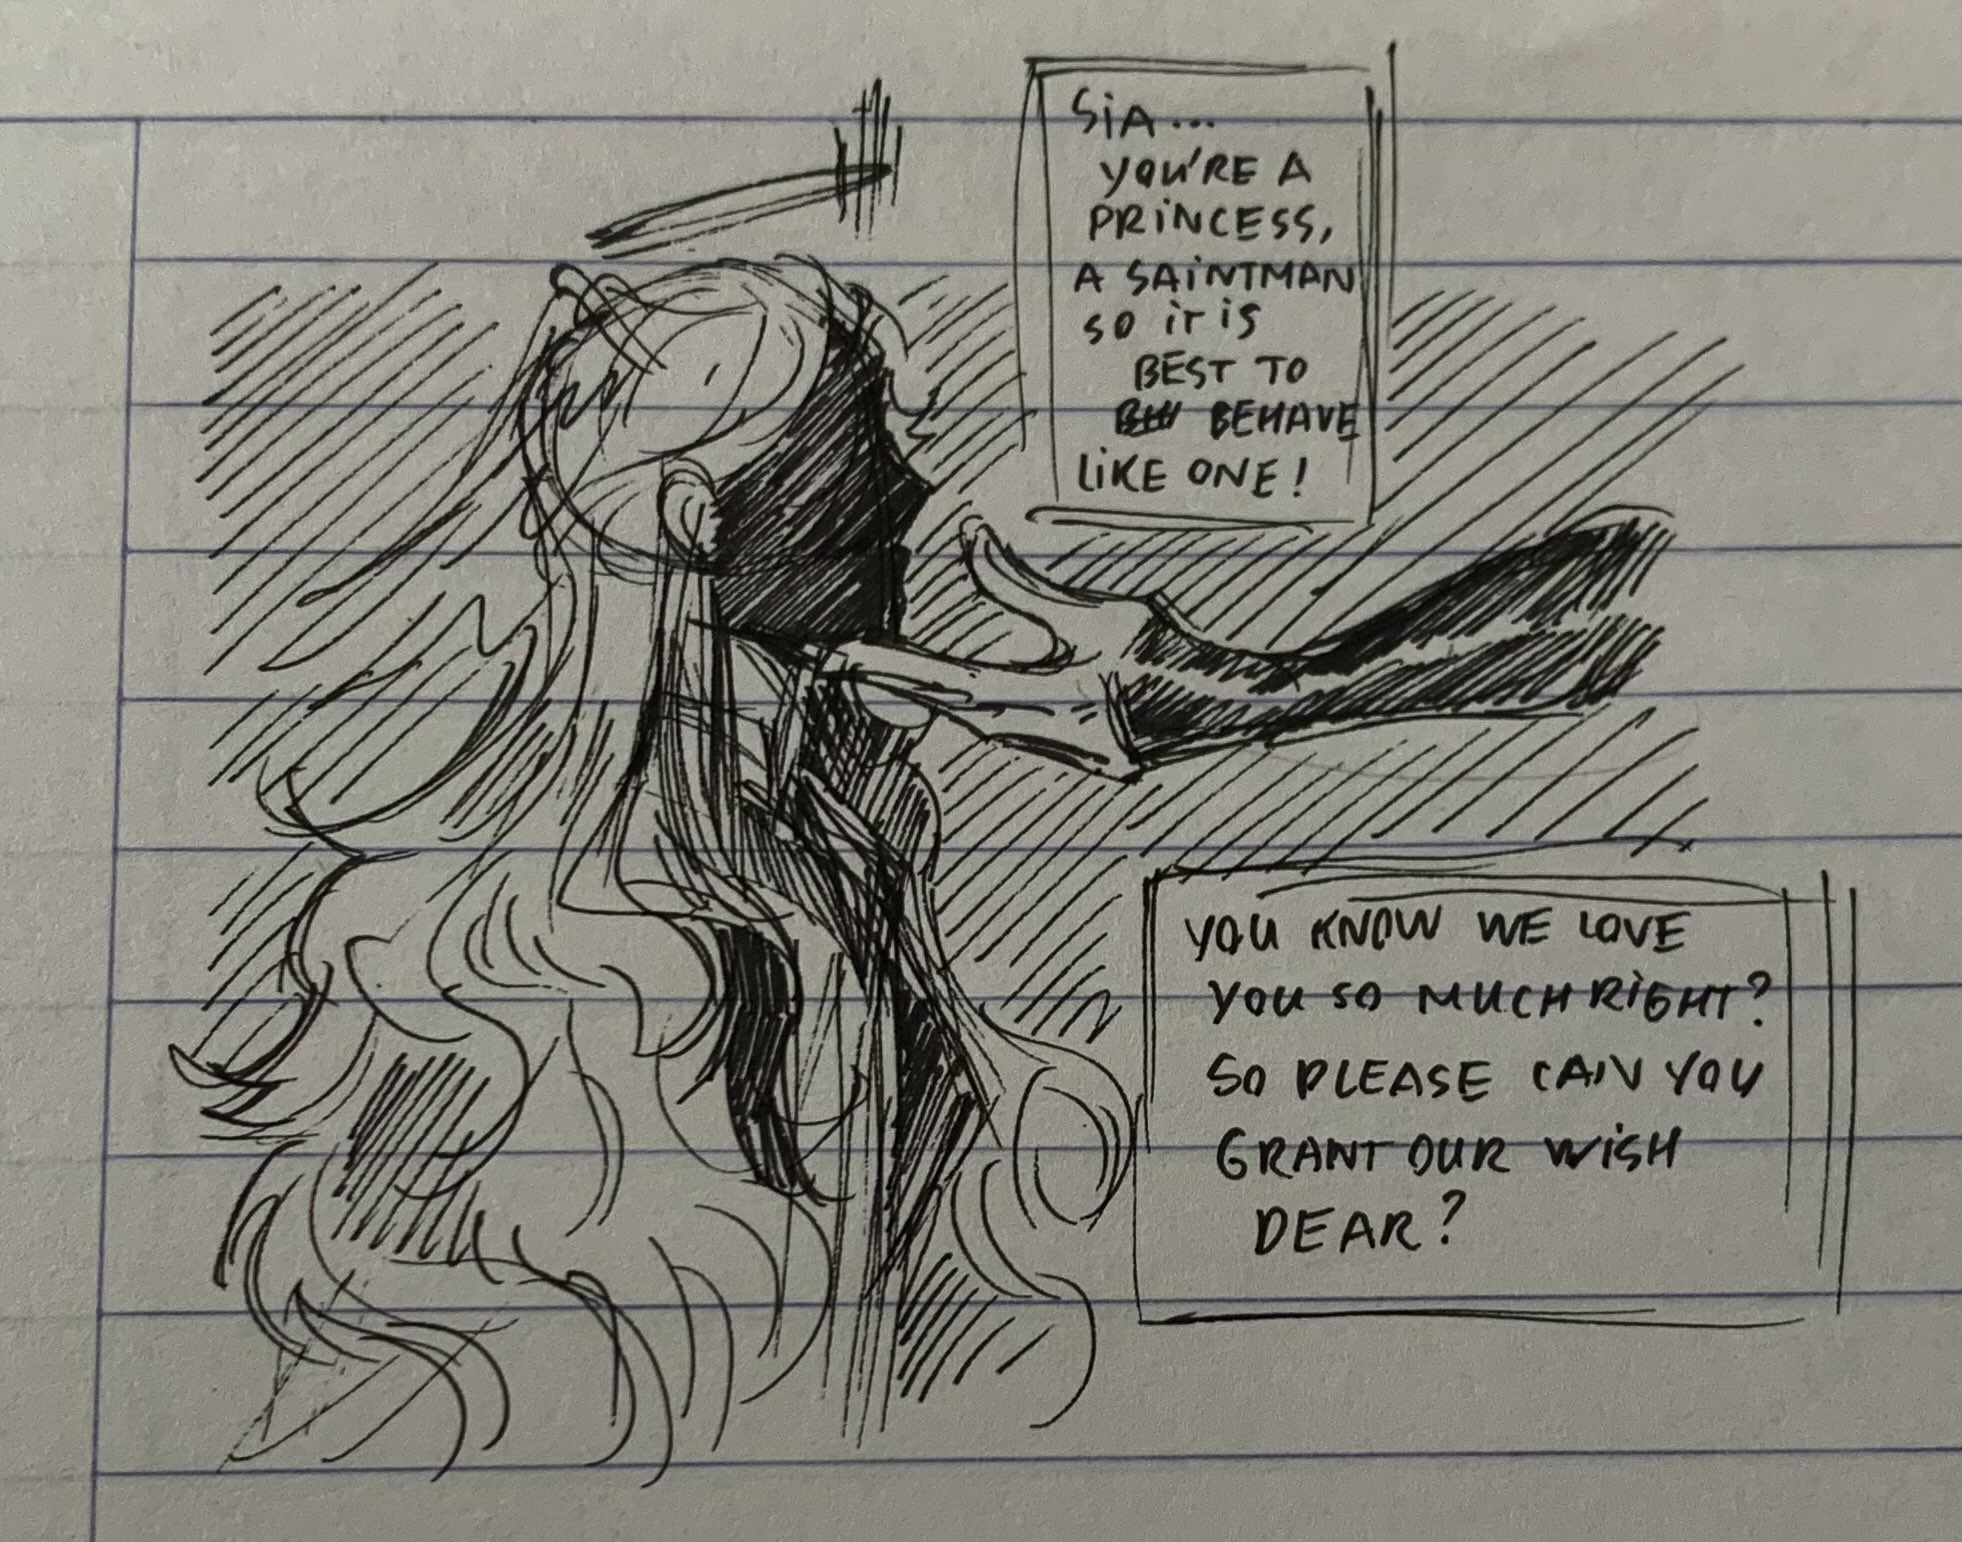 SiA...
YOU'RE A
PRiNCESS,
A SAiNTMAN
SO iT iS
BEST TO
BEHAVE
LiKE ONE!
YOU KNOW WE LOVE
YOU SO MUCH RiGHT?
SO PLEASE CAN YOU
GRANT OUR WiSH
DEAR?